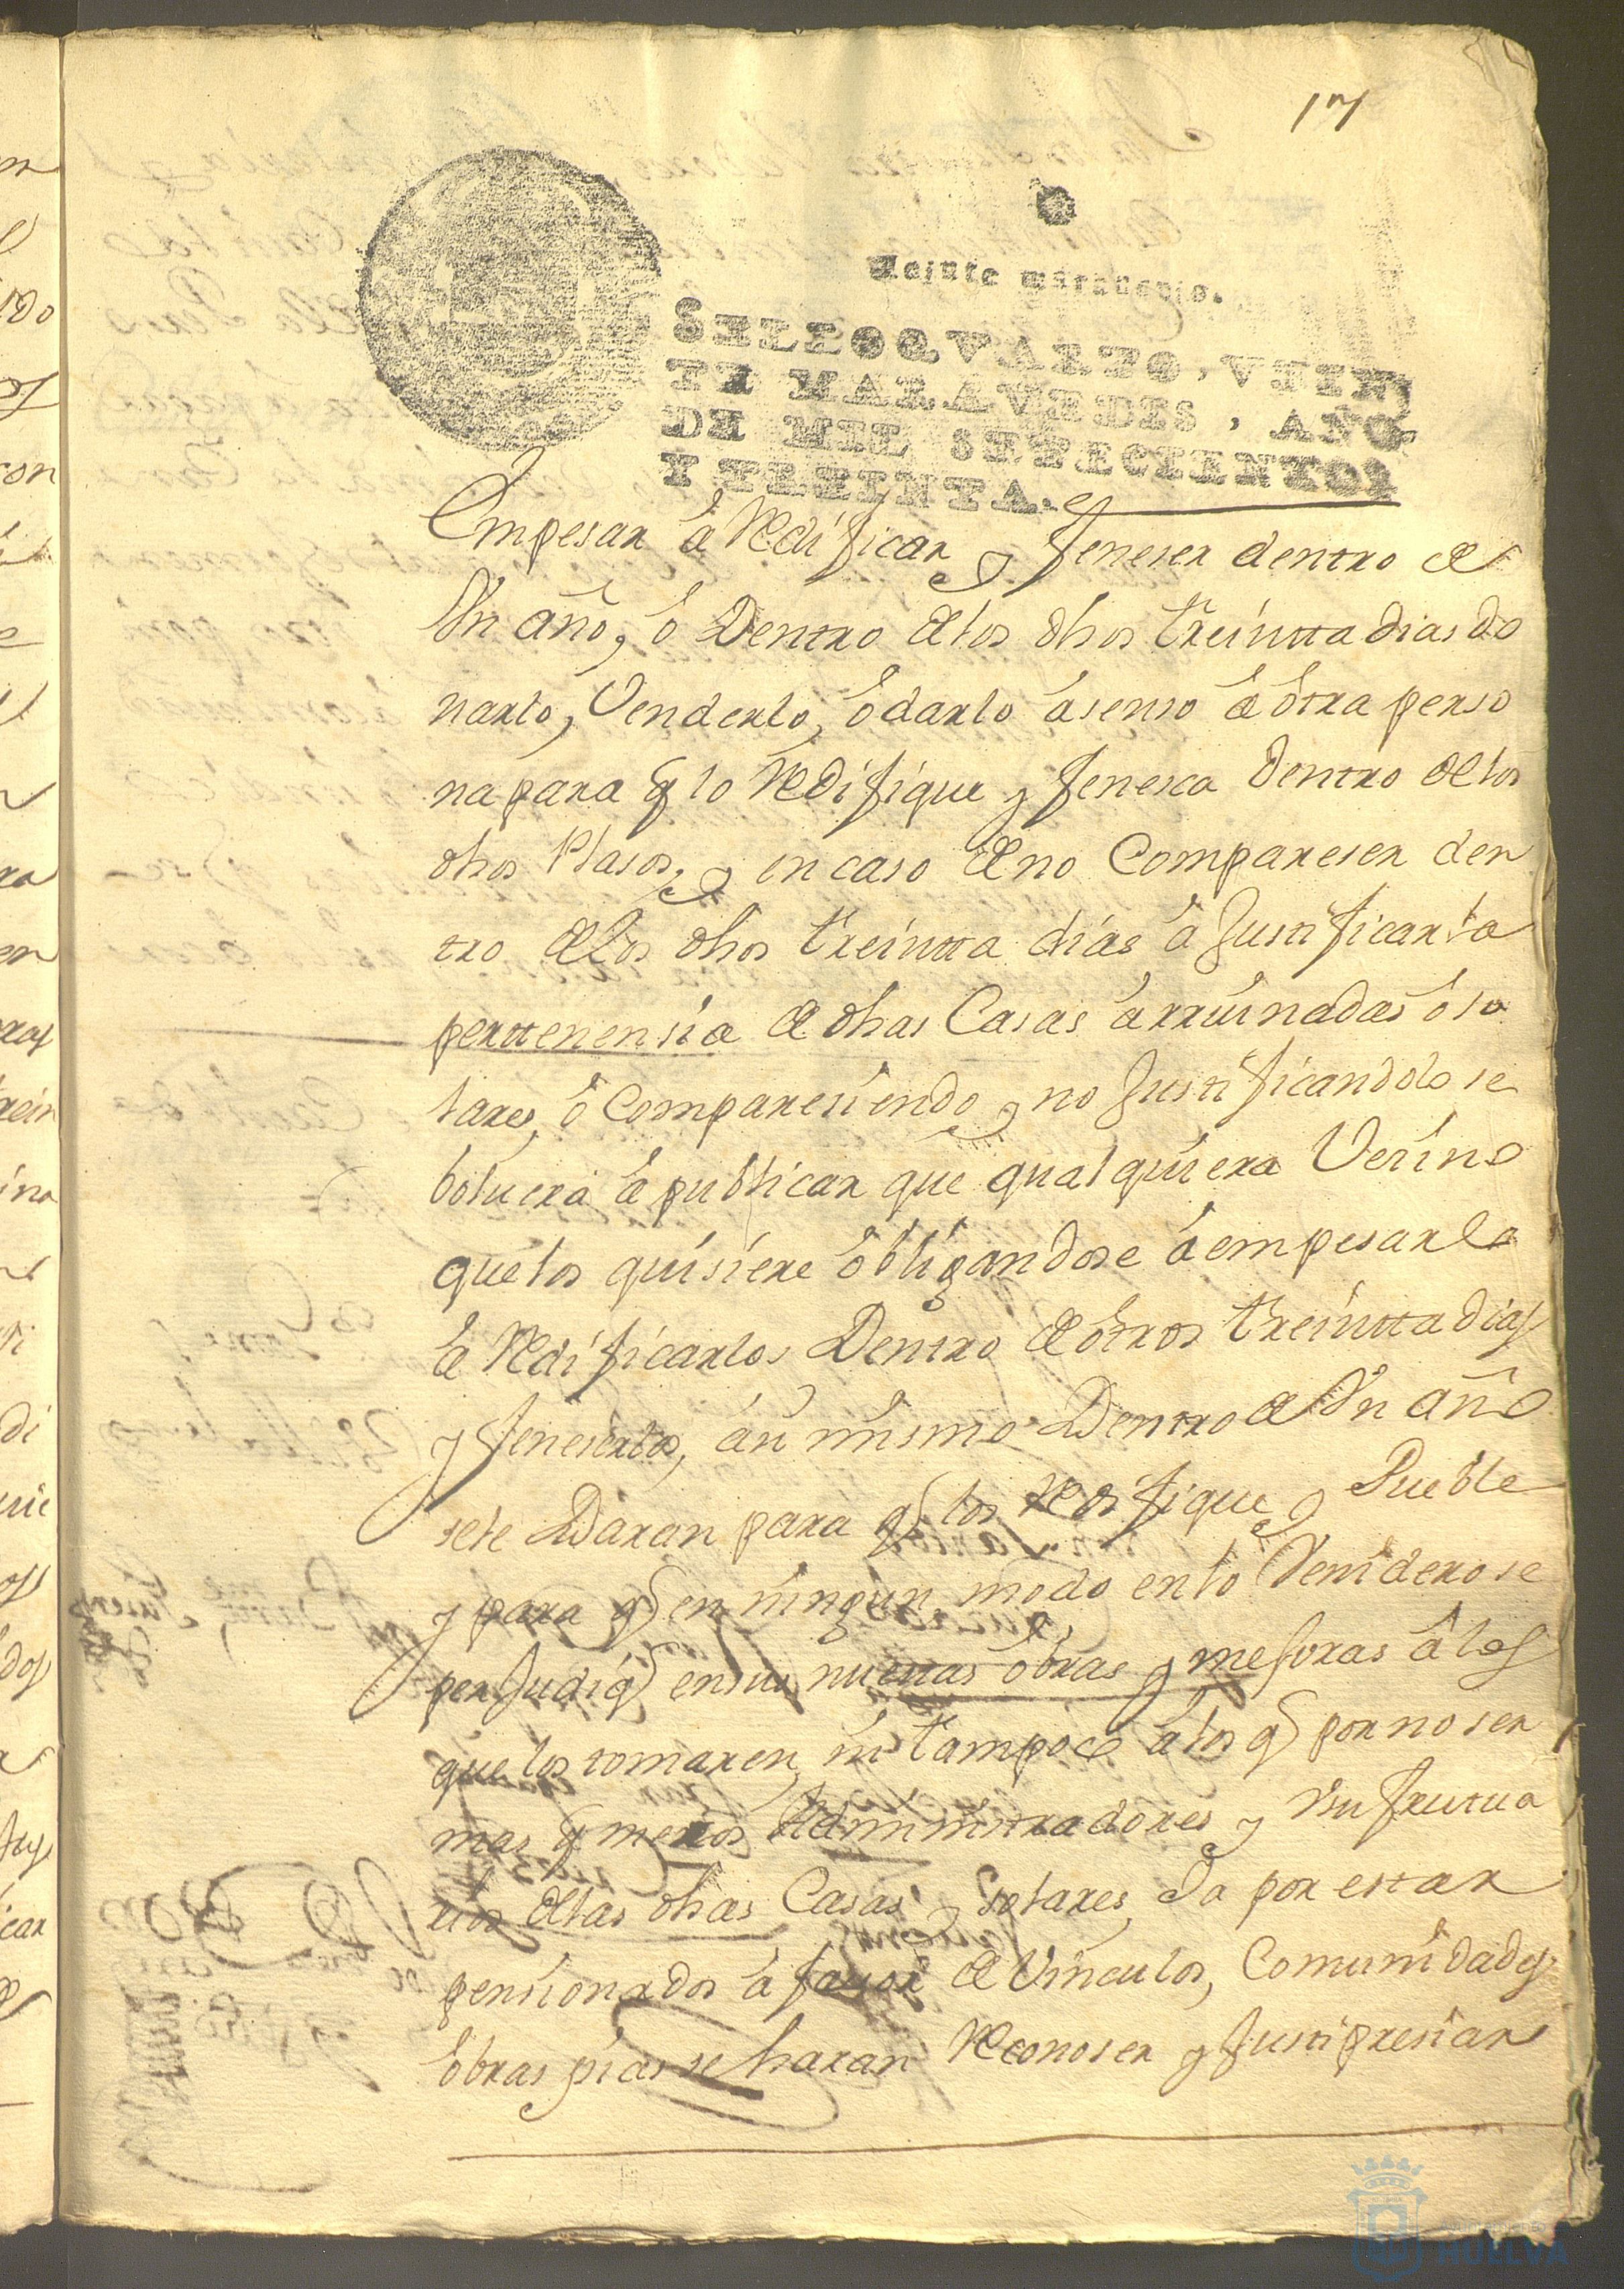 17
Veinte maravedis.
SELLO QVARTO, VEIN
TE MARAVEDIS, AÑO
DE MIL SETECIENTOS
Y TREINTA.
Empesar á Redificar y feneser dentro de
Vn año, ó Dentro de los dhos treintta dias do
narlo, Venderlo, ó darlo á senso á ótra perso
na para q lo Redifique y fenesca dentro de los
dhos Plasos, y en caso de no Compareser den
tro de los dhos treintta dias á Justificar la
perttenensia de dhas Casas arruinadas ó so
lares, ó Comparesiendo y no Justificandolo se
boluera á publicar que qualquiera Vesino
que los quisiere óbligandose á empesarlo
á Redificarlos Dentro de ótros treintta dias
y feneserlos, asi mismo Dentro de Vn año
se le Daran para q los Redifique y Pueble
y para q en ningun modo en lo Venidero se
perJudiq en sus nueuas óbras y mejoras á los
que los tomaren, ni tampoco á los q por no ser
mas q meros Administradores y Vsufrutua
rios de las dhas Casas y solares, da por estar
pensionados á fauor de Vinculos, Comunidades
óbras pias se haran Reconoser y Justipresiar
HUELVA